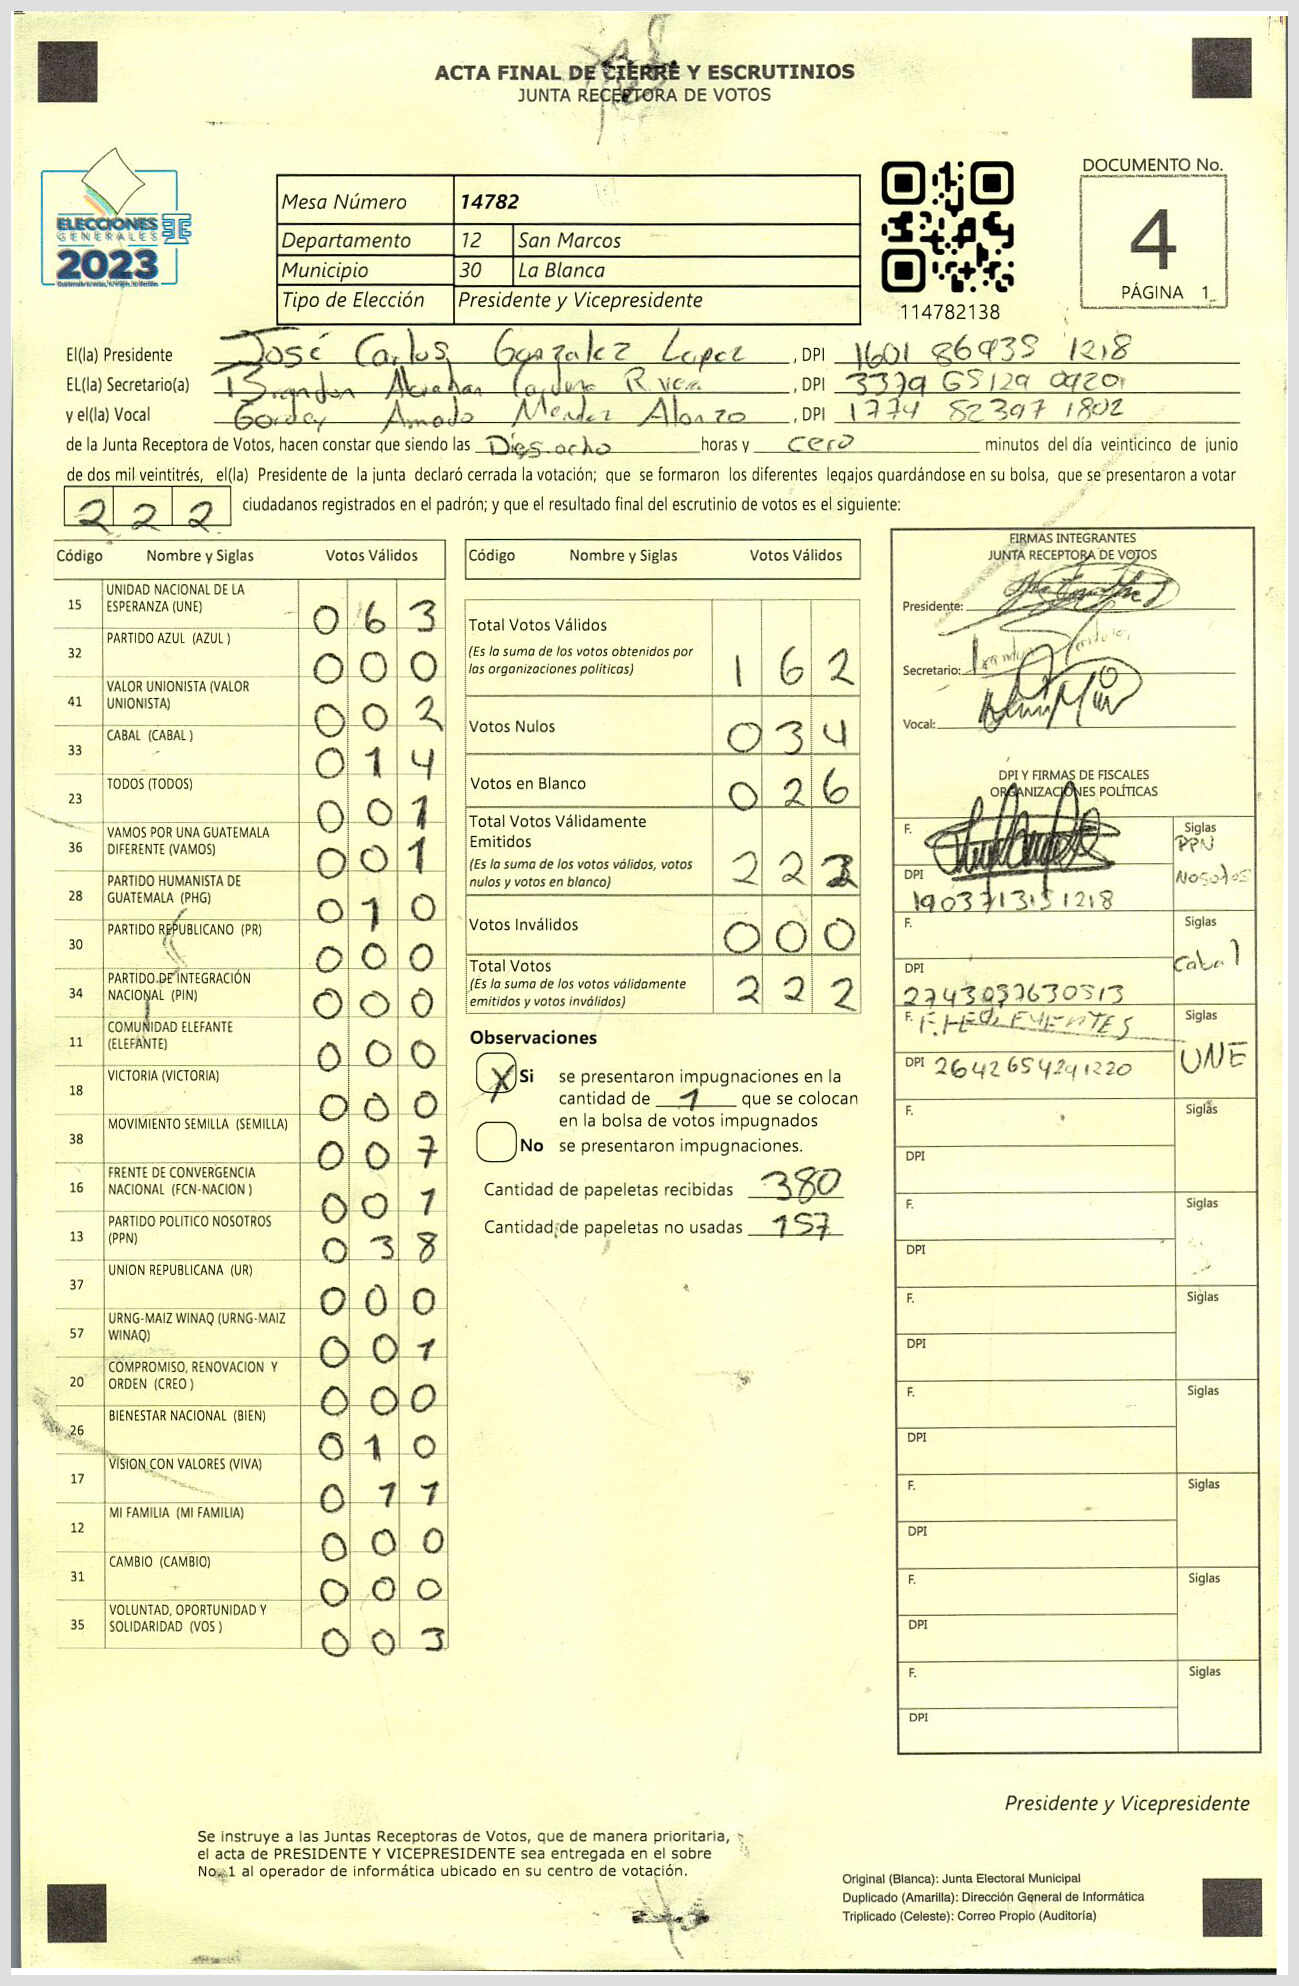 ACTA FINAL DE CIERRE Y ESCRUTINIOS
JUNTA RECEPTORA DE VOTOS
ELECCIONES
GENERALES
2023
Mesa Número 14782
Departamento 12 San Marcos
Municipio 30 La Blanca
Tipo de Elección Presidente y Vicepresidente
114782138
DOCUMENTO No.
4
PÁGINA 1
El(la) Presidente José Carlos Gonzalez Lopez, DPI 1601 86935 1218
EL(la) Secretario(a) Brandon Abrahan Cardona Rivera, DPI 3379 65129 0920
y el(la) Vocal Amado Mendez Alonzo, DPI 1774 82397 1802
de la Junta Receptora de Votos, hacen constar que siendo las Diesocho horas y cero minutos del día veinticinco de junio
de dos mil veintitrés, el(la) Presidente de la junta declaró cerrada la votación; que se formaron los diferentes legajos guardándose en su bolsa, que se presentaron a votar
222 ciudadanos registrados en el padrón; y que el resultado final del escrutinio de votos es el siguiente:
Código Nombre y Siglas Votos Válidos
15 UNIDAD NACIONAL DE LA ESPERANZA (UNE) 063
32 PARTIDO AZUL (AZUL ) 000
41 VALOR UNIONISTA (VALOR UNIONISTA) 002
33 CABAL (CABAL ) 014
23 TODOS (TODOS) 001
36 VAMOS POR UNA GUATEMALA DIFERENTE (VAMOS) 001
28 PARTIDO HUMANISTA DE GUATEMALA (PHG) 010
30 PARTIDO REPUBLICANO (PR) 000
34 PARTIDO DE INTEGRACIÓN NACIONAL (PIN) 000
11 COMUNIDAD ELEFANTE (ELEFANTE) 000
18 VICTORIA (VICTORIA) 000
38 MOVIMIENTO SEMILLA (SEMILLA) 007
16 FRENTE DE CONVERGENCIA NACIONAL (FCN-NACION ) 001
13 PARTIDO POLITICO NOSOTROS (PPN) 038
37 UNION REPUBLICANA (UR) 000
57 URNG-MAIZ WINAQ (URNG-MAIZ WINAQ) 001
20 COMPROMISO, RENOVACION Y ORDEN (CREO ) 000
26 BIENESTAR NACIONAL (BIEN) 010
17 VISION CON VALORES (VIVA) 011
12 MI FAMILIA (MI FAMILIA) 000
31 CAMBIO (CAMBIO) 000
35 VOLUNTAD, OPORTUNIDAD Y SOLIDARIDAD (VOS ) 003
Código Nombre y Siglas Votos Válidos
Total Votos Válidos 162
(Es la suma de los votos obtenidos por
las organizaciones políticas)
Votos Nulos 034
Votos en Blanco 026
Total Votos Válidamente
Emitidos 222
(Es la suma de los votos válidos, votos
nulos y votos en blanco)
Votos Inválidos 000
Total Votos 222
(Es la suma de los votos válidamente
emitidos y votos inválidos)
Observaciones
X Si se presentaron impugnaciones en la
cantidad de 1 que se colocan
en la bolsa de votos impugnados
No se presentaron impugnaciones.
Cantidad de papeletas recibidas 380
Cantidad de papeletas no usadas 157
FIRMAS INTEGRANTES
JUNTA RECEPTORA DE VOTOS
Presidente:
Secretario:
Vocal:
DPI Y FIRMAS DE FISCALES
ORGANIZACIONES POLÍTICAS
F. Siglas
PPN
Nosotros
DPI 1903713151218
F. Siglas
Cabal
DPI
2743037630513
F. Siglas
UNE
DPI 2642654241220
F. Siglas
DPI
F. Siglas
DPI
F. Siglas
DPI
F. Siglas
DPI
F. Siglas
DPI
F. Siglas
DPI
F. Siglas
DPI
Presidente y Vicepresidente
Se instruye a las Juntas Receptoras de Votos, que de manera prioritaria,
el acta de PRESIDENTE Y VICEPRESIDENTE sea entregada en el sobre
No. 1 al operador de informática ubicado en su centro de votación.
Original (Blanca): Junta Electoral Municipal
Duplicado (Amarilla): Dirección General de Informática
Triplicado (Celeste): Correo Propio (Auditoría)